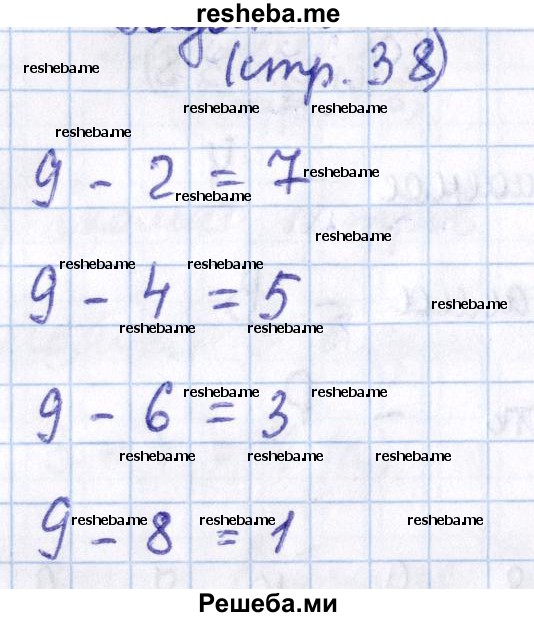 resheba.me
(стр. 38)
resheba.me
resheba.me resheba.me
resheba.me
9 - 2 = 7
resheba.me
resheba.me
resheba.me
resheba.me resheba.me
9 - 4 = 5
resheba.me
resheba.me resheba.me
resheba.me resheba.me
9 - 6 = 3
resheba.me resheba.me resheba.me
resheba.me resheba.me resheba.me
9 - 8 = 1
Решеба.ми